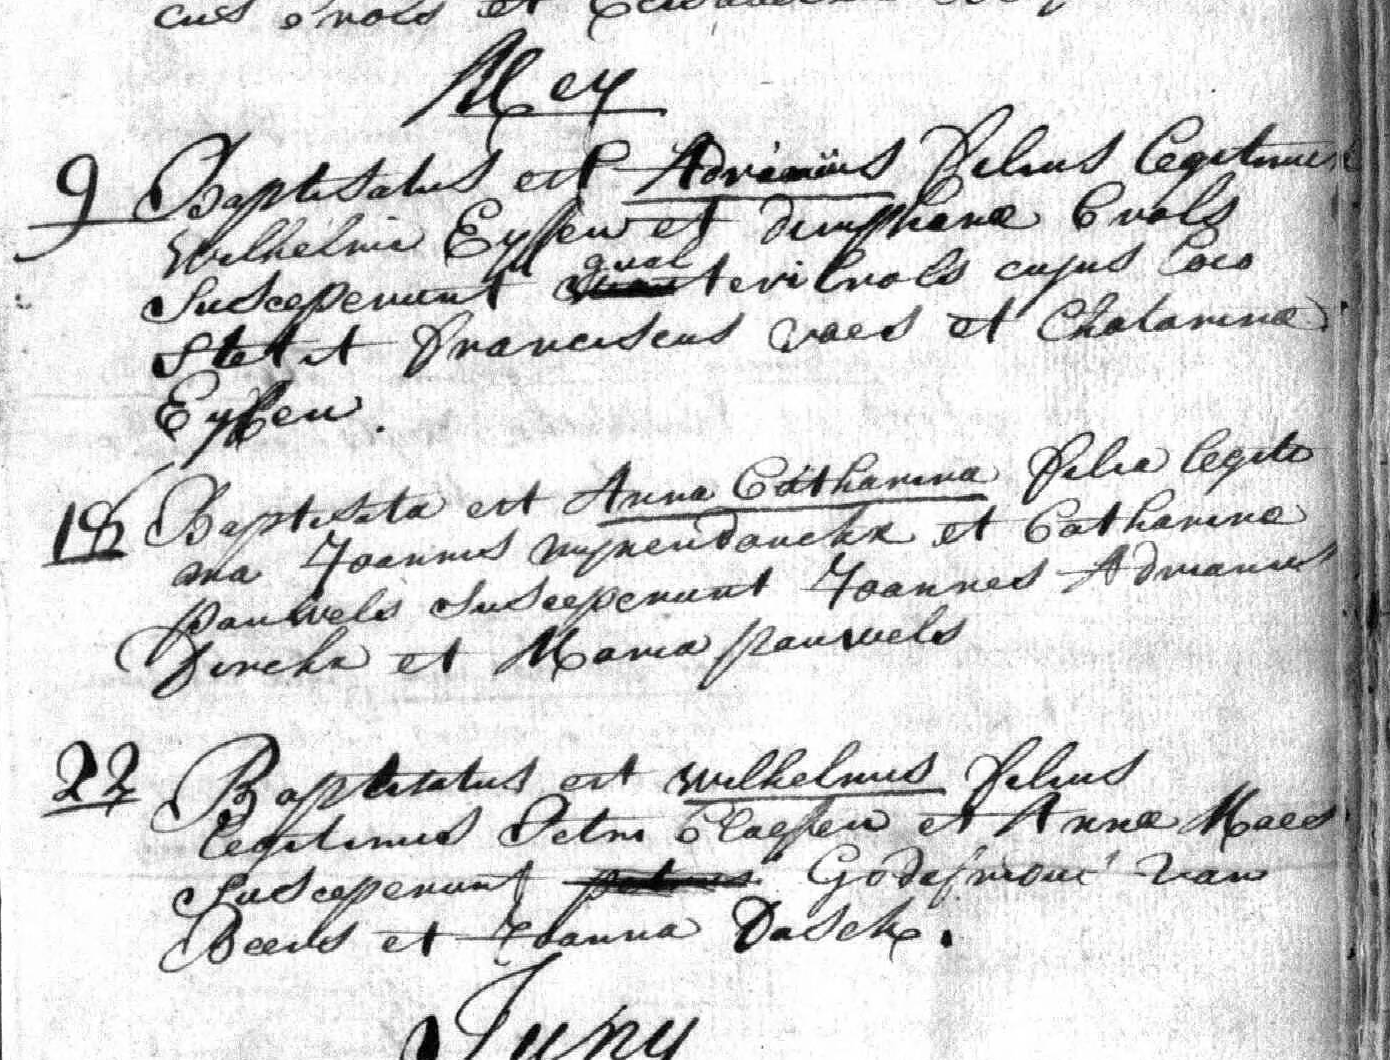 Mey
9 Baptisatus est Adrianus filius legitimus
Wilhelmi Eyssen et dimphanæ Crols
Susceperunt gual teri Crols cujus loco
Stetit Franciscus Maes et Chatarina
Eyssen.
18 Baptisata est Anna Catharina filia legiti
ma Joannis et Catharinæ
pauwels Susceperunt Joannes Adrianus
Dirckx et Maria pauwels
22 Baptisatus est Wilhelmus filius
legitimus Petri Claessen et Annæ Maes
Susceperunt van
Beers et Joanna
Juny